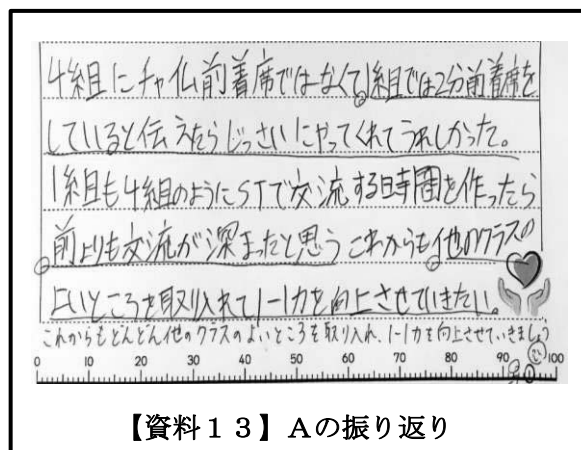 4組にチャイム前着席ではなくて1組では2分前着席を
していると伝えたらじっさいにやってくれてうれしかった。
1組も4組のようにSTで交流する時間を作ったら
前よりも交流が深まったと思う これからも他のクラスの
よいところを取り入れて1-1力を向上させていきたい。
これからもどんどん他のクラスのよいところを取り入れ、1-1力を向上させていきましょう
0 10 20 30 40 50 60 70 80 90 100
【資料13】Aの振り返り